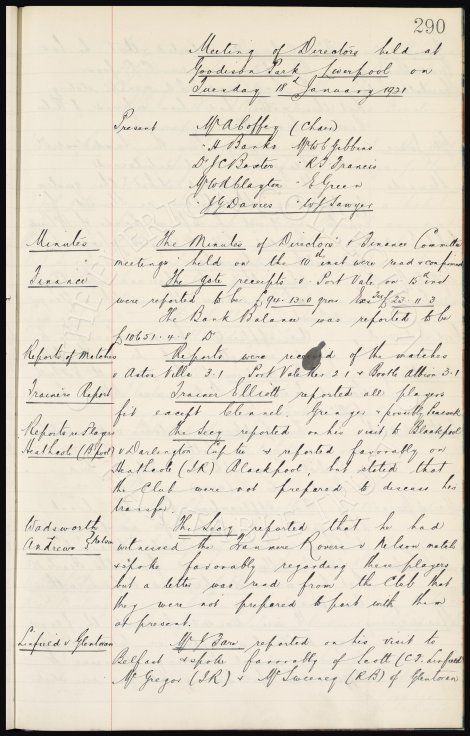 290
Meeting of Directors held at
Goodison Park, Liverpool on
Tuesday 18th January 1921
Present Mr A Coffey (Chair)
" H Banks Mr W C Gibbins
Dr J C Baxter " R T Francis
Mr W R Clayton " E Green
" J G Davies " W J Sawyer
Minutes The Minutes of Directors & Finance Committee
meetings held on the 10th inst were read & confirmed
Finance The gate receipts v. Port Vale on 15th inst
were reported to be £94.13.0 gross less Tax £23.11.3
The Bank Balance was reported to be
£10651.4.8 D
Reports of Matches Reports were received of the matches
v Aston Villa 3.1 Port Vale Res 2.1 & Bootle Albion 3.1
Trainers Report Trainer Elliott reported all players
fit except Clennel. Grenyer & possibly Peacock
Reports re Players The Secy reported on his visit to Blackpool
Heathcote (B'pool) v Darlington Cup tie & reported favorably on
Heathcote (I.R) Blackpool, but stated that
the Club were not prepared to discuss his
transfer.
Wadsworth The Secy reported that he had
Andrews } Nelson witnessed the Tranmere Rovers v Nelson match
& spoke favorably regarding these players
but a letter was read from the Club that
they were not prepared to part with them
at present.
Linfield v Glentoran Mr J Fare reported on his visit to
Belfast & spoke favorably of Scott (C.F. Linfield)
McGregor (I.R) & McSweeney (R.B) of Glentoran